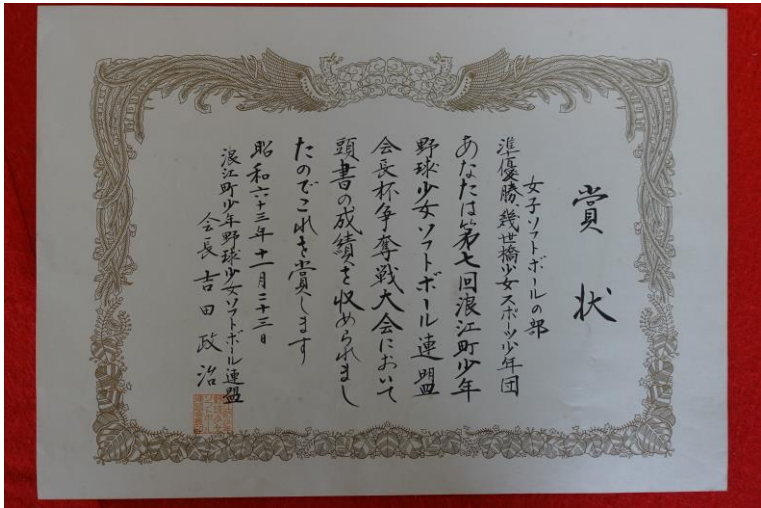 賞状
女子ソフトボールの部
準優勝 幾世橋少女スポーツ少年団
あなたは第七回浪江町少年
野球少女ソフトボール連盟
会長杯争奪戦大会において
頭書の成績を収められまし
たのでこれを賞します
昭和六十三年十一月二十三日
浪江町少年野球少女ソフトボール連盟
会長 吉田政治